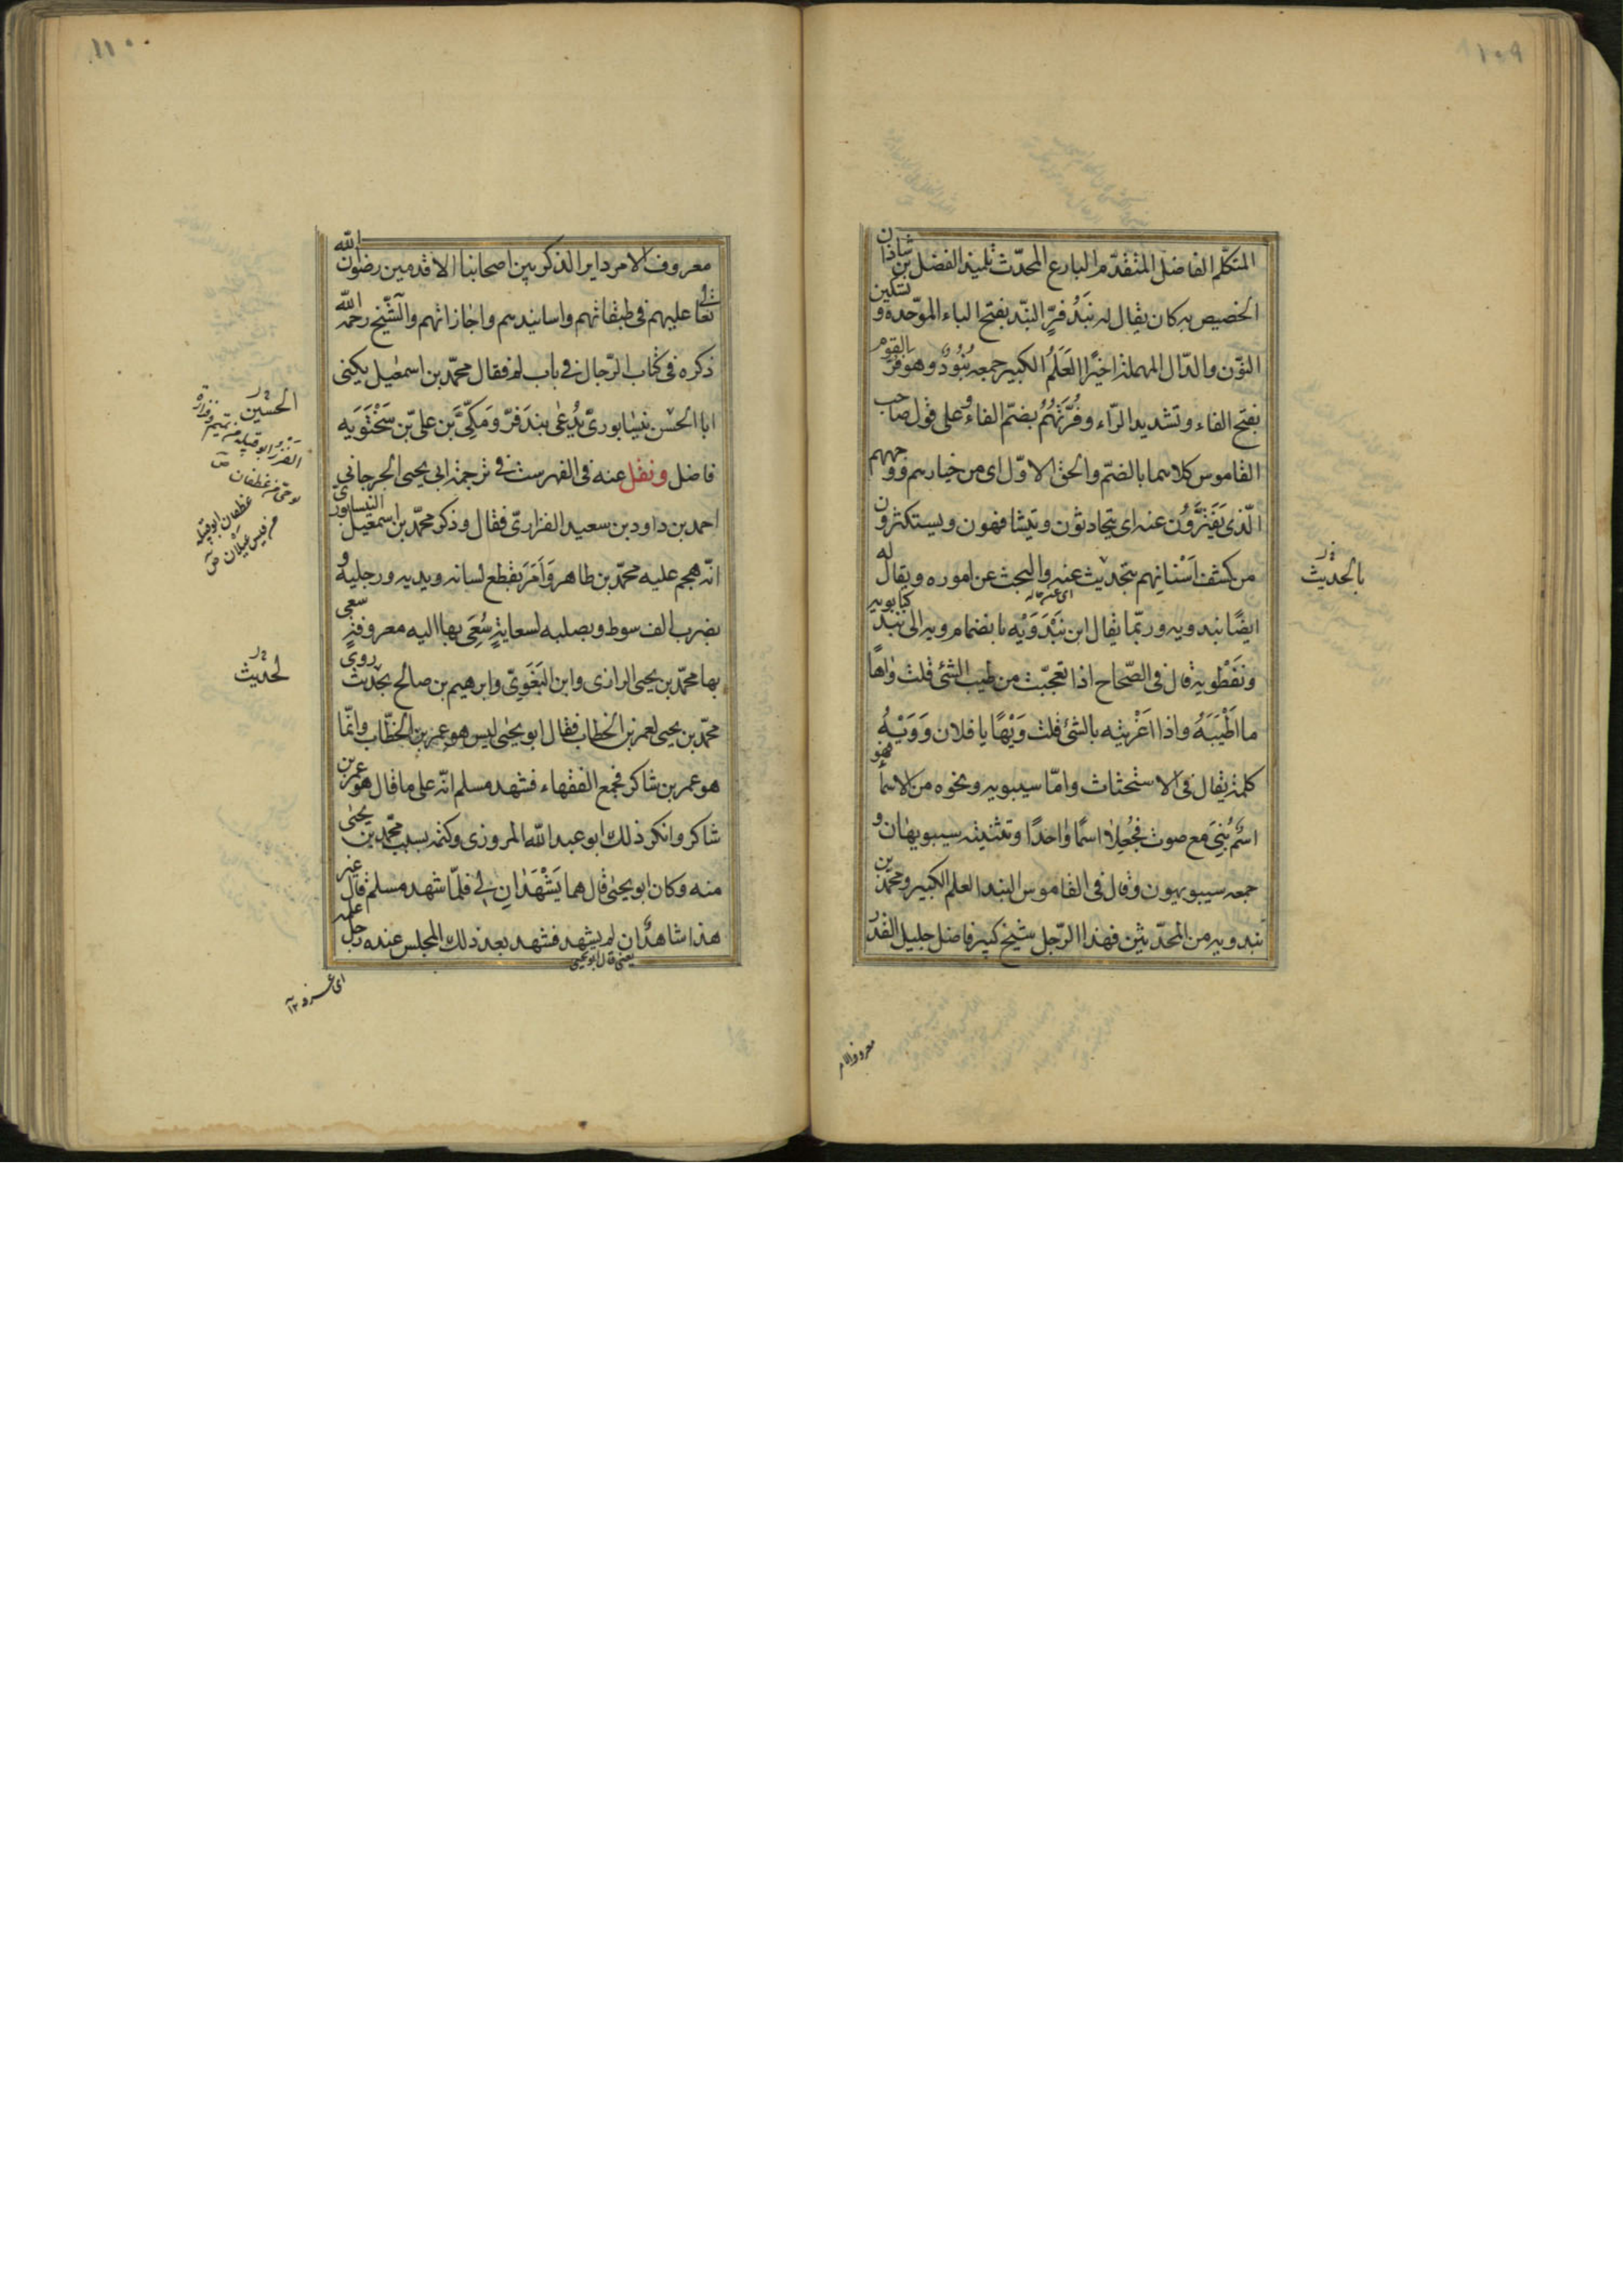 ١٠٩
المتكلّم الفاضل المتقدّم البارع المحدّث تلميذ الفضل بن شاذان
الخصيص به كان يقال له بَنْدُ فرّ البند بفتح الباء الموّحدة و تسكين
النّون والدّال المهملة اخيرًا العَلَمُ الكبير جمعه بُنُودٌ وهو فرّ القوم
بفتح الفاء وتشديد الرّاء وفُرَّتُهُمُ بضمّ الفاء وعلى قول صاحب
القاموس كلاهما بالضمّ والحق الاوّل اى من خيارهم و وجههم
الّذى يَفْتَرُّونَ عنه اى يتحادثون ويتشافهون ويستكثرون
من كشف اَسْنانِهم بتحديث عنه والبحث عن اموره ويقال له
اى عنه
ايضًا بندويه وربّما يقال ابن بَنْدَوَيْه بانضمام ويه الى بند كبابويه
ونفطويه قال فى الصّحاح اذا تعجّبت من طيب الشئ قلت واهًا
ما اَطْيَبَهُ واذا اَغْريته بالشئ قلت وَيْهًا يا فلان وَوَيْهِ
كلمة يقال فى الاستحثاث وامّا سيبويه ونحوه من الاسما فهو
اسْمٌ بُنِىَ مع صوت فجُعِلا اسمًا واحدًا وتثنيته سيبويهان و
جمعه سيبويهون وقال فى القاموس البند العلم الكبير ومحمّد بن
بندويه من المحدّثين فهذا الرّجل شيخ كبير فاضل جليل القدر
بالحديث
معروف الام
١١٠
معروف الامر داير الذكر بين اصحابنا الاقدمين رضوان الله
تعالى عليهم فى طبقاتهم واسانيدهم واجازاتهم والشّيخ رحمه الله
ذكره فى كتاب الرّجال فى باب لم فقال محمّد بن اسمعيل يكنى
ابا الحسن نيسابورىّ يُدعى بندَفرّ ومَكّىّ بن علىّ بن سَخْتَوَيه
فاضل ونقل عنه فى الفهرست فى ترجمة ابى يحيى الجرجانى
احمد بن داود بن سعيد الفزارىّ فقال وذكر محمّد بن اسمعيل النيسابورى
انّه هجم عليه محمّد بن طاهر وَاَمَرَ بقطع لسانه ويديه ورجليه و
بضرب الف سوط وبصلبه لسعايةٍ سُعِىَ بها اليه معروفة سعى
بها محمّد بن يحيى الرازى وابن البَغَوِىّ وابرهيم بن صالح بحديث روى
محمّد بن يحيى لعمر بن الخطاب فقال ابو يحيى ليس هو عمر بن الخطّاب وانّما
هو عمر بن شاكر فجمع الفقهاء فشهد مسلم انّه على ما قال هو عمر بن
شاكر وانكر ذلك ابو عبد الله المروزى وكتمه بسبب محمّد بن يحيى
منه وكان ابو يحيى قال هما يَشْهَدانِ لى فلمّا شهد مسلم قال غير
هذا شاهدٌ ان لم يشهد فشهد بعد ذلك المجلس عنده رجل
يعنى قال ابو يحيى
الحسين
لحديث